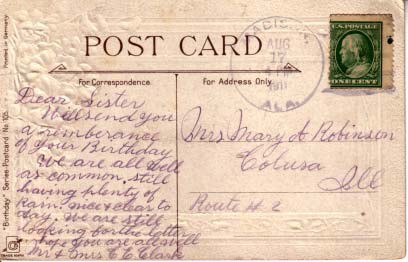 POST CARD
For Correspondence.
For Address Only.
Printed in Germany
"Birthday" Series Postcard No. 105
U.S. POSTAGE
ONE CENT
AUG
17
1911
ALA.
Dear Sister
Will send you
a rememberance
of your Birthday
We are all well
as common. still
having plenty of
rain. nice & clear to
day. We are still
looking for the letter
hope you are all still
Mr & Mrs C C Clark
Mrs Mary A Robinson
Colusa
Ill
Route # 2